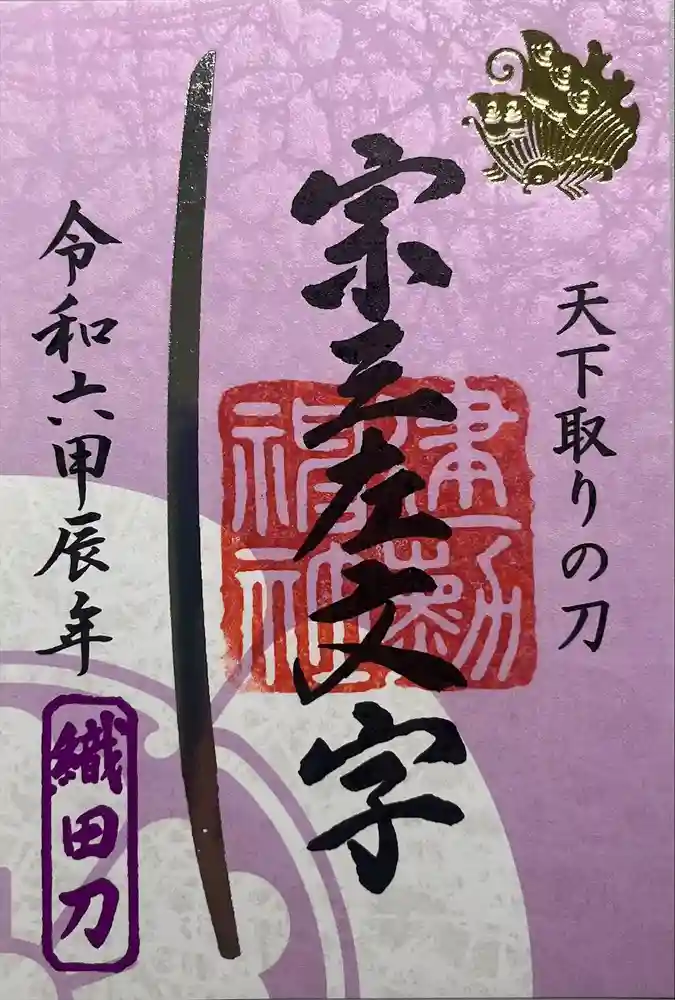 天下取りの刀
宗三左文字
建勲
神社
令和六甲辰年
織田刀